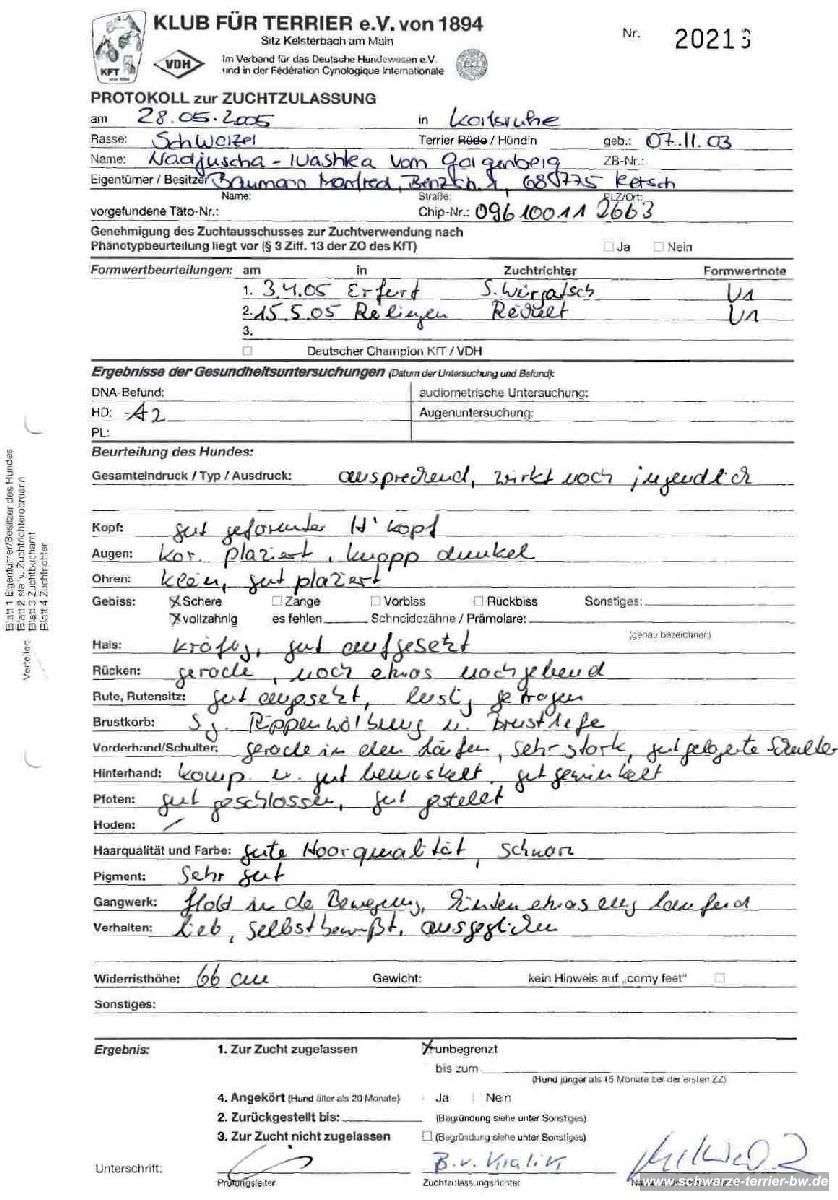 KLUB FÜR TERRIER e.V. von 1894
Sitz Kelsterbach am Main
KFT
VDH
Im Verband für das Deutsche Hundewesen e.V.
und in der Fédération Cynologique Internationale
Nr. 20213
PROTOKOLL zur ZUCHTZULASSUNG
am 28.05.2005 in Karlsruhe
Rasse: Schwarzer Terrier Rüde / Hündin geb.: 07.11.03
Name: Nadjuscha-Ivashka vom Galgenberg ZB-Nr.:
Eigentümer / Besitzer Baumann Manfred, 68775 Ketsch
Name: Straße: PLZ/Ort:
vorgefundene Täto-Nr.: Chip-Nr.: 096100112663
Genehmigung des Zuchtausschusses zur Zuchtverwendung nach
Phänotypbeurteilung liegt vor (§ 3 Ziff. 13 der ZO des KfT) Ja Nein
Formwertbeurteilungen: am in Zuchtrichter Formwertnote
1. 3.4.05 Erfurt V1
2. 15.5.05 V1
3.
Deutscher Champion KfT / VDH
Ergebnisse der Gesundheitsuntersuchungen (Datum der Untersuchung und Befund):
DNA-Befund: audiometrische Untersuchung:
HD: A2 Augenuntersuchung:
PL:
Beurteilung des Hundes:
Gesamteindruck / Typ / Ausdruck: ansprechend, wirkt noch jugendlich
Kopf: gut geformter H'kopf
Augen: kor. plaziert, knapp dunkel
Ohren: klein, gut plaziert
Gebiss: Schere Zange Vorbiss Rückbiss Sonstiges:
vollzahnig es fehlen Schneidezähne / Prämolare:
(genau bezeichnen)
Hals: kräftig, gut aufgesetzt
Rücken: gerade, noch etwas nachgebend
Rute, Rutensitz: gut angesetzt, lustig getragen
Brustkorb: Sg. Rippenwölbung u. Brusttiefe
Vorderhand/Schulter: gerade in den Läufen, sehr stark, gut gelagerte Schulter
Hinterhand: komp. u. gut bemuskelt, gut gewinkelt
Pfoten: gut geschlossen, gut gestellt
Hoden: /
Haarqualität und Farbe: gute Haarqualität, schwarz
Pigment: Sehr gut
Gangwerk: flott in der Bewegung, hinten etwas eng laufend
Verhalten: Lieb, selbstbewußt, ausgeglichen
Widerristhöhe: 66 cm Gewicht: kein Hinweis auf „corny feet"
Sonstiges:
Ergebnis: 1. Zur Zucht zugelassen unbegrenzt
bis zum
(Hund jünger als 15 Monate bei der ersten ZZ)
4. Angekört (Hund älter als 20 Monate) Ja Nein
2. Zurückgestellt bis: (Begründung siehe unter Sonstiges)
3. Zur Zucht nicht zugelassen (Begründung siehe unter Sonstiges)
Unterschrift: B.v. Kralik
Prüfungsleiter Zuchtzulassungsrichter
www.schwarze-terrier-bw.de
Verteiler:
Blatt 1 Eigentümer/Besitzer des Hundes
Blatt 3 Zuchtbuchamt
Blatt 4 Zuchtrichter